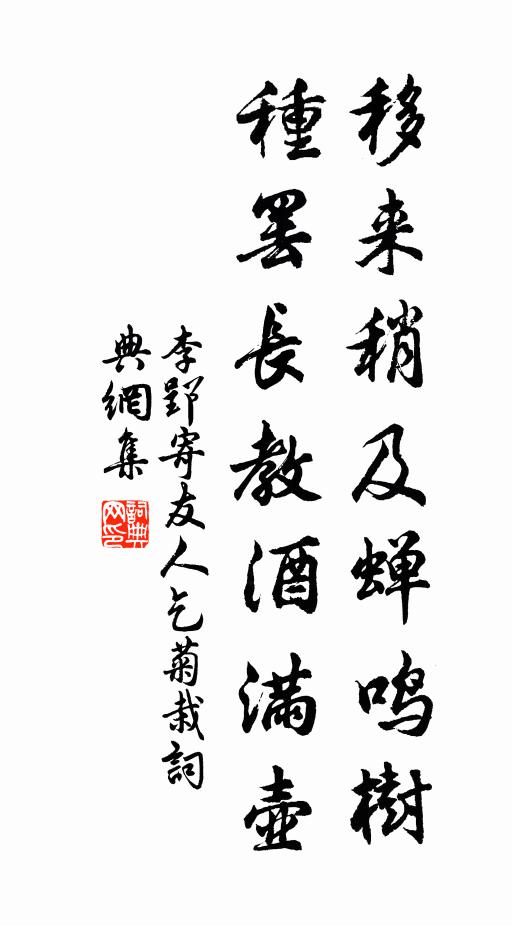 移来稍及蝉鸣樹
種罢長教酒满壺
李郢寄友人乞菊栽詞
典網集
詞典网印